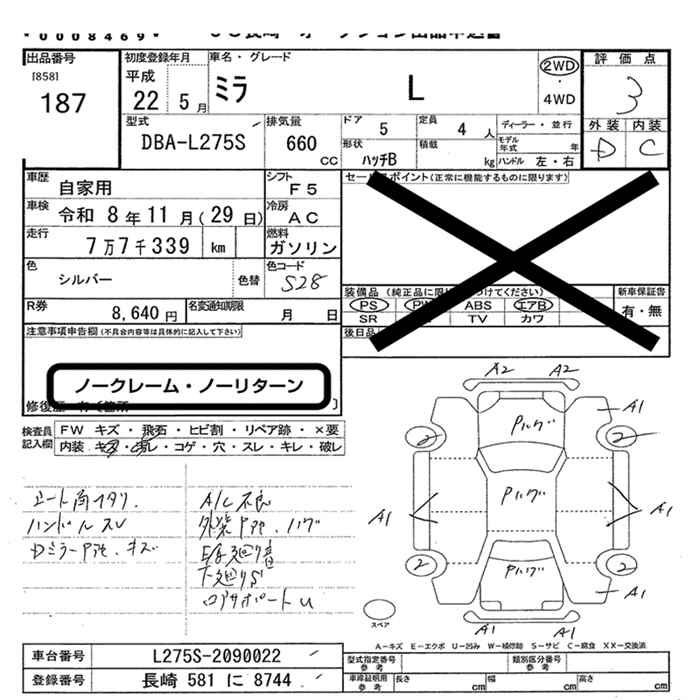 *0008469*
JU長崎 オークション出品申込書
出品番号
[858]
187
初度登録年月
平成
22 5月
車名・グレード
ミラ L
2WD
・
4WD
評価点
3
外装 内装
D C
型式
DBA-L275S
排気量
660
cc
ドア
5
定員
4 人
形状
ハッチB
積載
kg
ディーラー・並行
モデル年式 年
ハンドル 左・右
車歴
自家用
シフト
F5
車検
令和 8年 11月( 29日)
冷房
AC
走行
7万7千339 km
燃料
ガソリン
色
シルバー
色替
色コード
S28
R券
8,640円
名変通知期限
月 日
セールスポイント(正常に機能するものに限ります)
装備品
PS PW ABS エアB
SR TV カワ
新車保証書
有・無
後日品
注意事項申告欄(不具合内容等は具体的に記入して下さい)
ノークレーム・ノーリターン
修復歴
検査員記入欄
FW キズ・飛石・ヒビ割・リペア跡・×要
内装 キズ・汚レ・コゲ・穴・スレ・キレ・破レ
シート角フタリ.
ハンドルスレ
Dミラー
キズ
A/C不良
外装
ハゲ
下廻りS
ロアサポートU
A2 A2
Pハゲ
A1
2 2
Pハゲ
A1 A1
2 2
Pハゲ
A1
W1 A1
スペア
A−キズ E−エクボ U−凹み W−補修跡 S−サビ C−腐食 XX−交換済
車台番号
L275S-2090022
登録番号
長崎 581 に 8744
型式指定番号
参考
類別区分番号
参考
車線証明用
参考
長さ cm
幅 cm
高さ cm